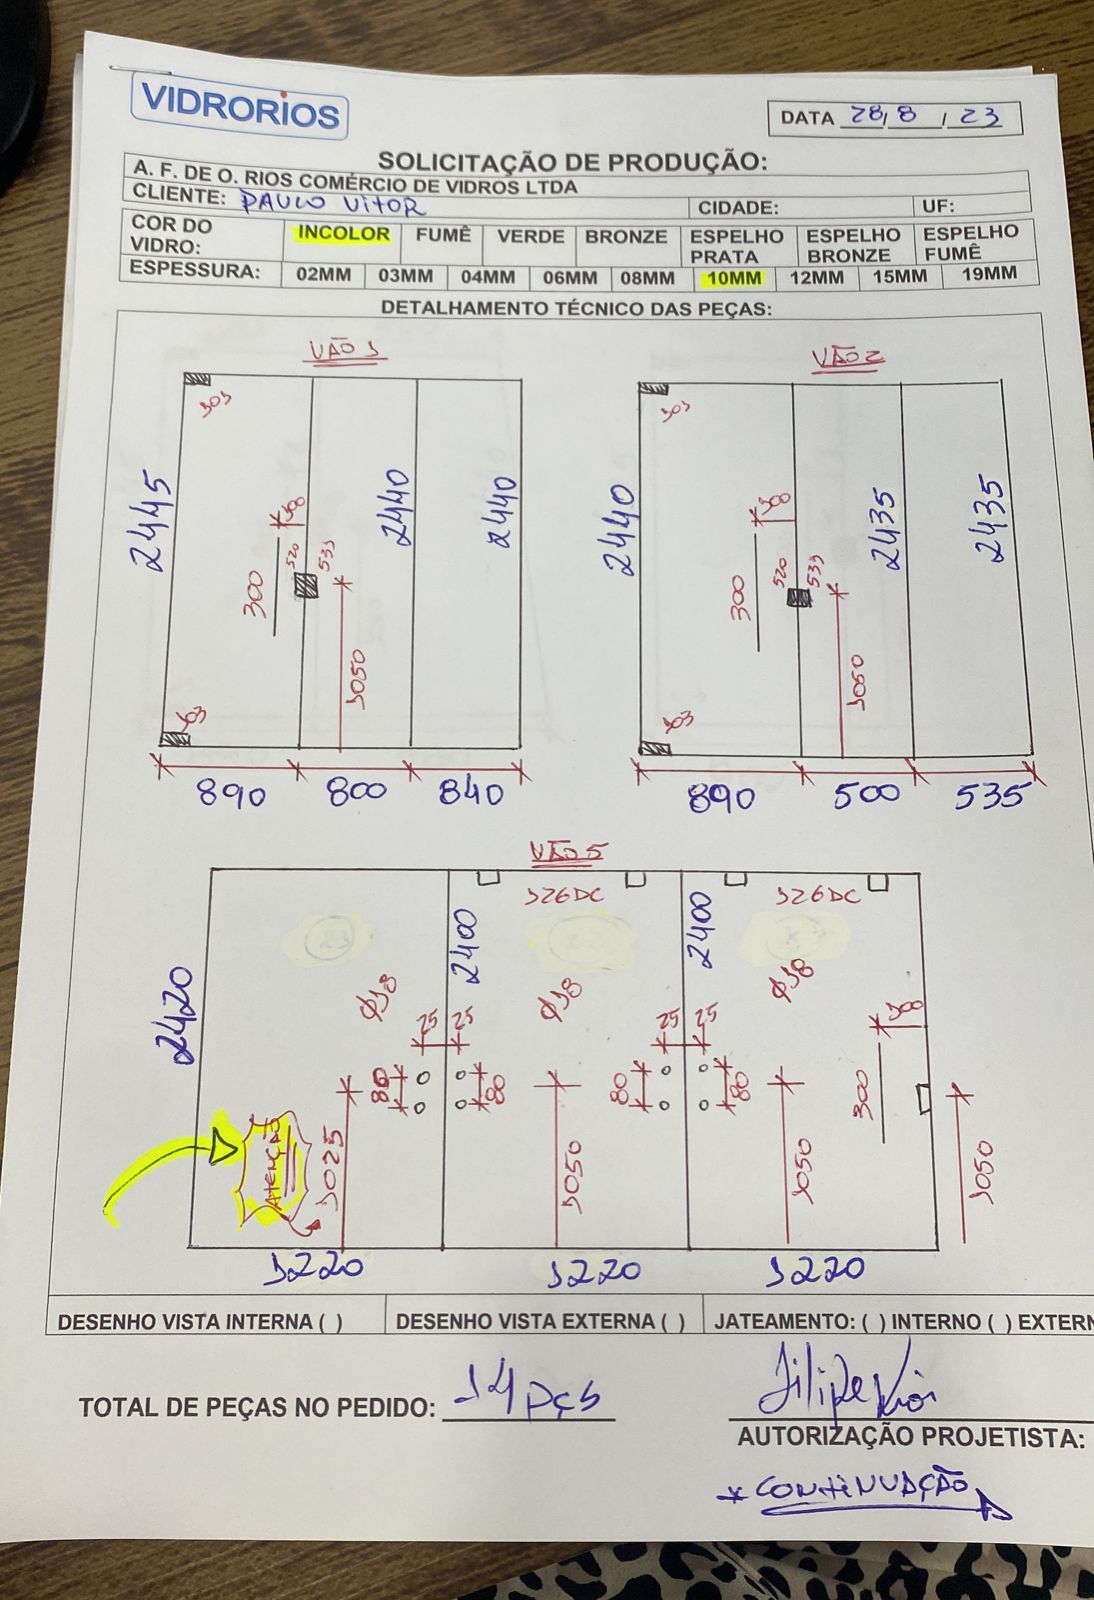 VIDRORIOS
DATA 28/8/23
SOLICITAÇÃO DE PRODUÇÃO:
A. F. DE O. RIOS COMÉRCIO DE VIDROS LTDA
CLIENTE: PAULO VITOR CIDADE: UF:
COR DO VIDRO: INCOLOR FUMÊ VERDE BRONZE ESPELHO PRATA ESPELHO BRONZE ESPELHO FUMÊ
ESPESSURA: 02MM 03MM 04MM 06MM 08MM 10MM 12MM 15MM 19MM
DETALHAMENTO TÉCNICO DAS PEÇAS:
VÃO 1
103
2445
2440
2440
100
300
520
533
1050
103
890 800 840
VÃO 2
103
2440
2435
2435
100
300
520
533
1050
103
890 500 535
VÃO 5
126DC 126DC
2420
2400
2400
Ø18 Ø18 Ø18
25 25 25 25
100
80 80 80 80
300
ATENÇÃO
1025
1050
1050
1050
1220 1220 1220
DESENHO VISTA INTERNA ( ) DESENHO VISTA EXTERNA ( ) JATEAMENTO: ( ) INTERNO ( ) EXTERN
TOTAL DE PEÇAS NO PEDIDO: 14 PÇS
Filipe Rios
AUTORIZAÇÃO PROJETISTA:
* CONTINUAÇÃO